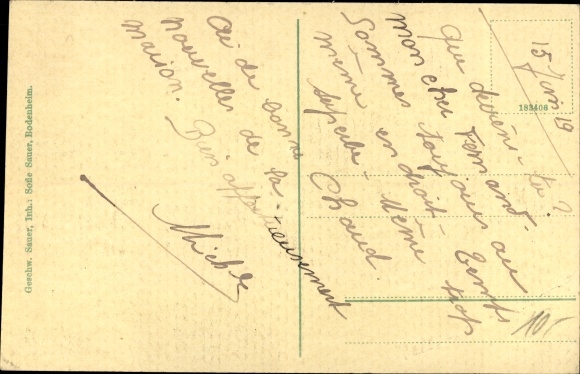 15 Juin 19
Que deviens-tu?
mon cher Fernand.
Sommes toujours au
même endroit. Temps
superbe - Même trop
Chaud.
Ai de bonnes
nouvelles de la
maison. Bien affectueusement
Michel
183408
10-
Geschw. Sauer, Inh.: Sofie Sauer, Bodenheim.